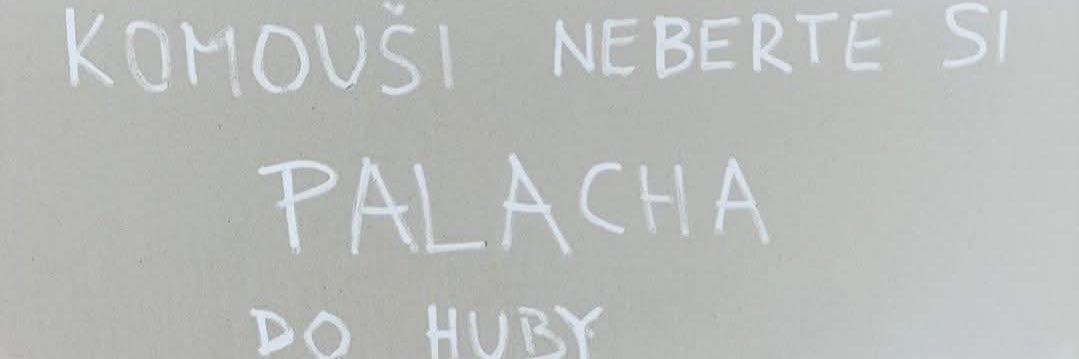 KOMOUŠI NEBERTE SI
PALACHA
DO HUBY